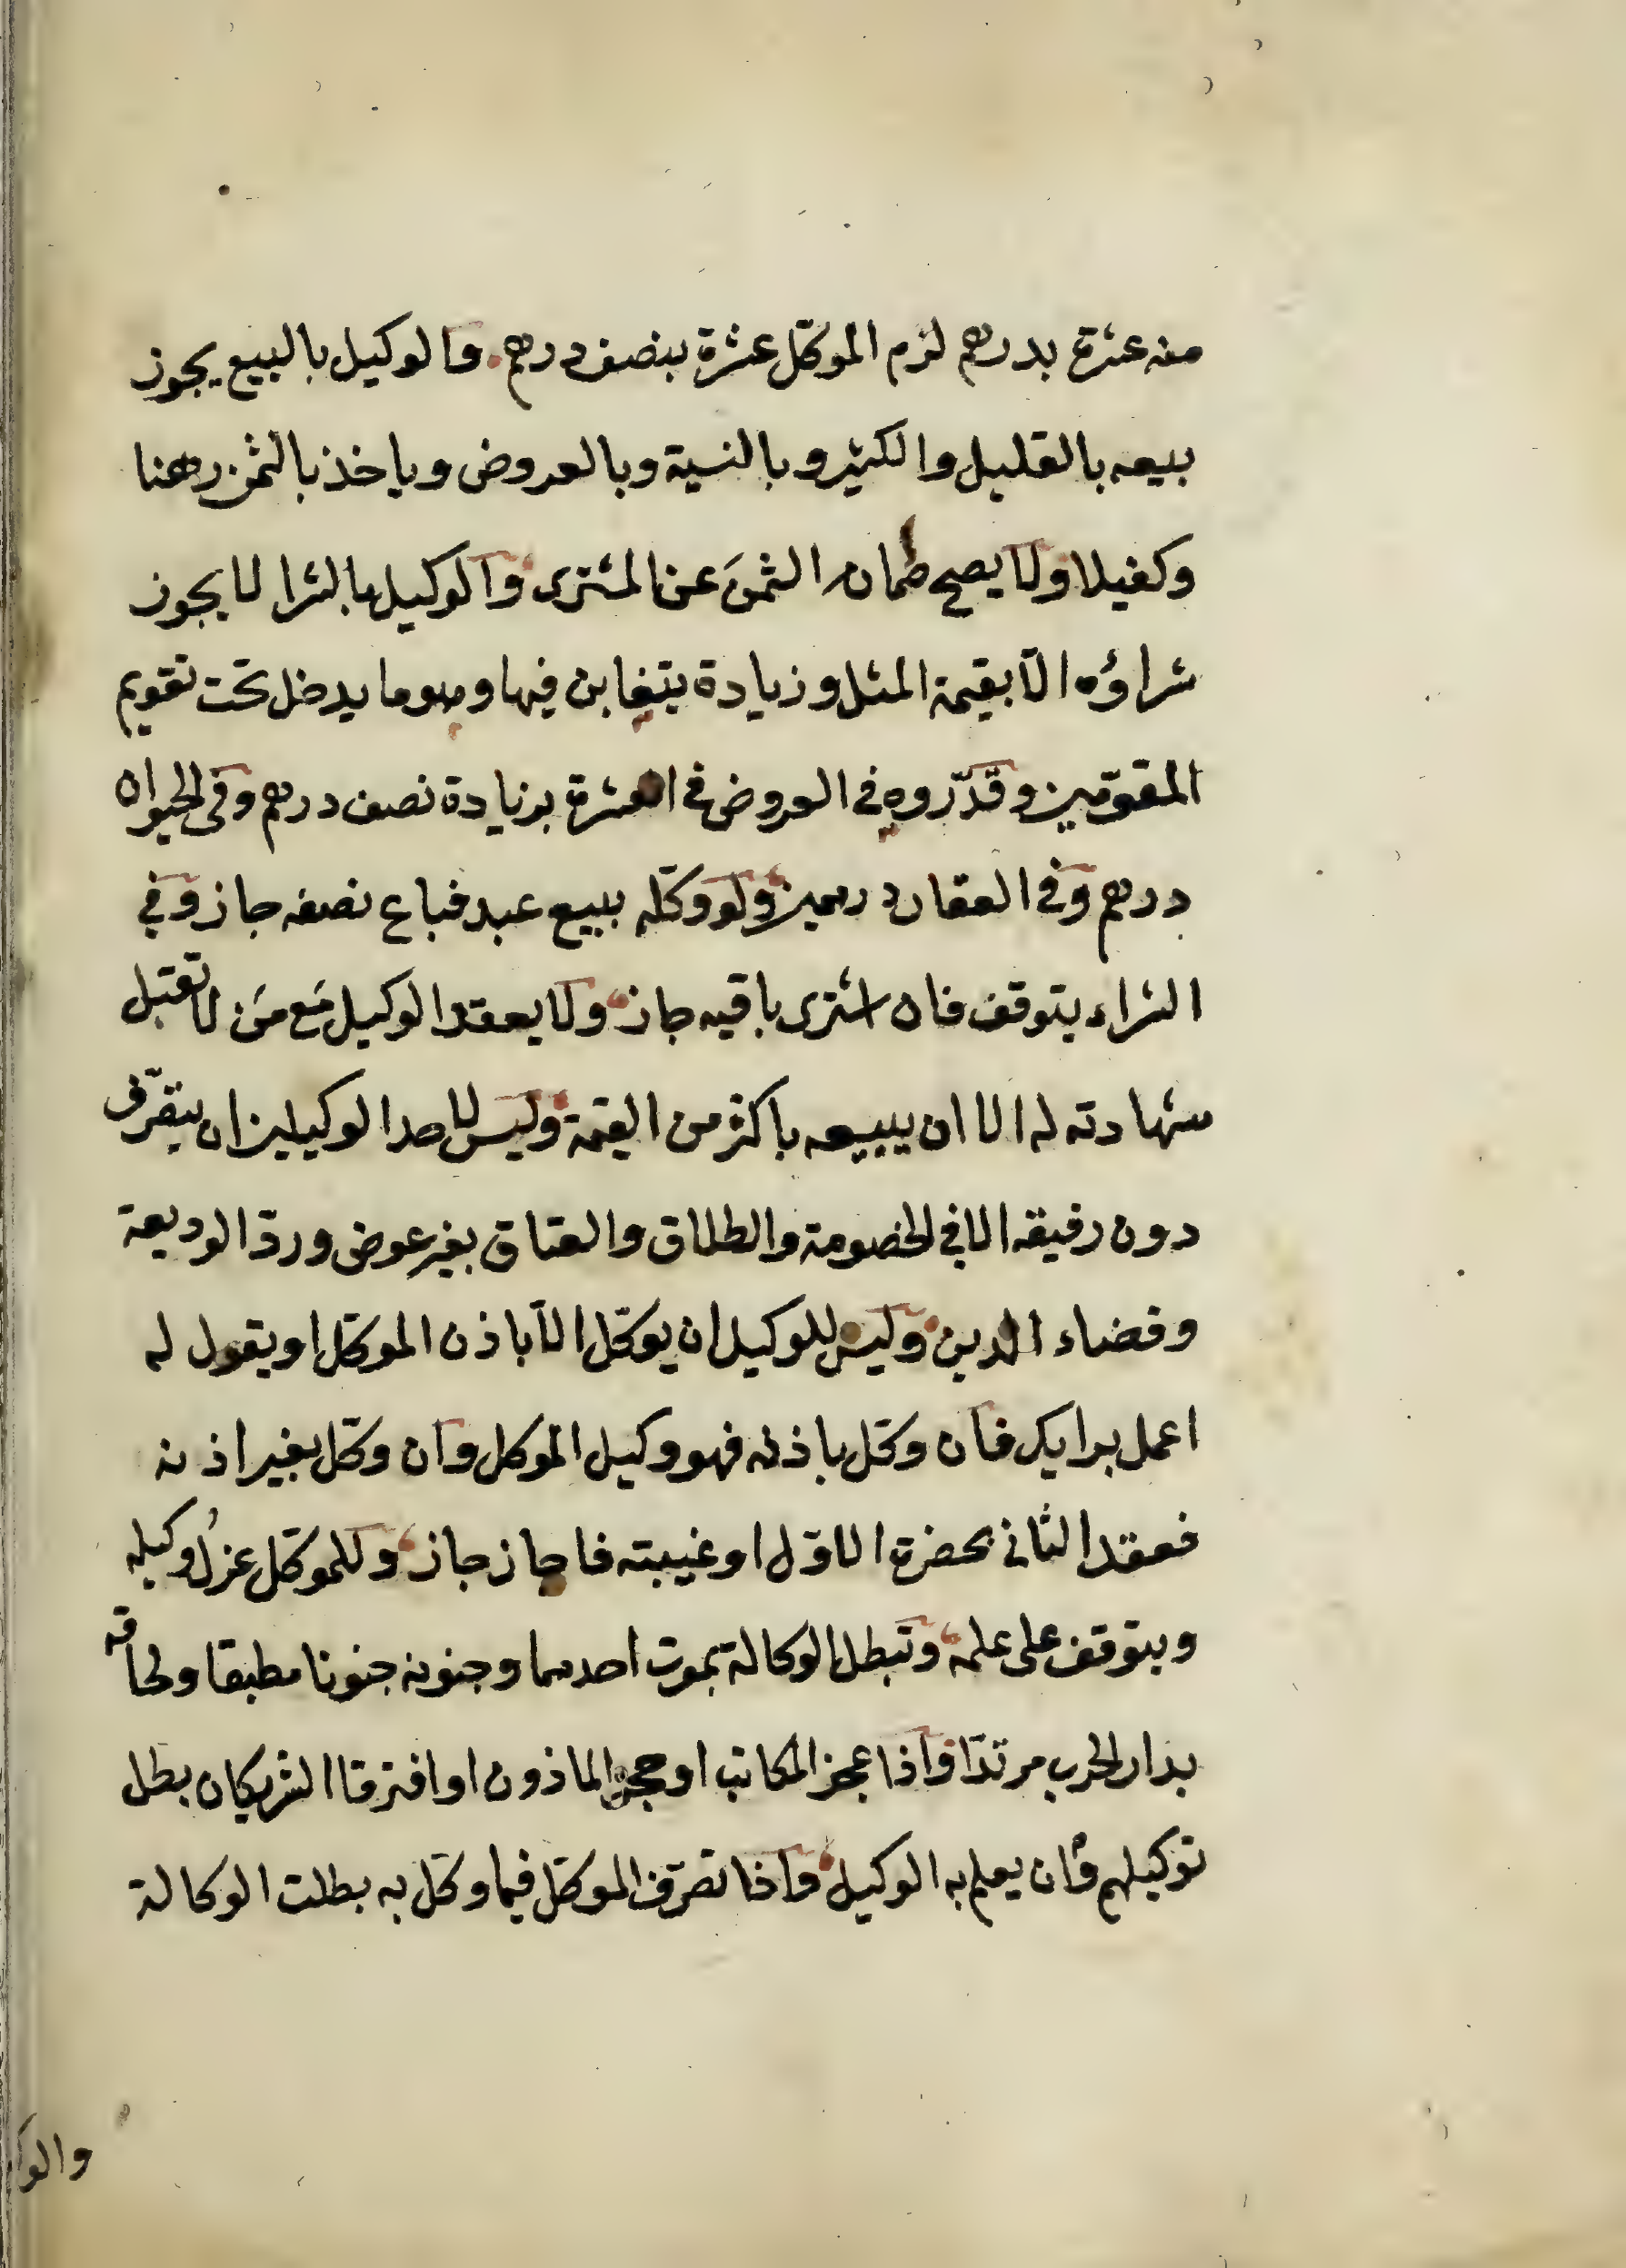 منه عشرة بدرهم لزم الموكّل عشرة بنصف درهم والوكيل بالبيع يجوز
بيعه بالقليل والكثير وبالنسية وبالعروض وياخذ بالثمن رهنا
وكفيلا ولا يصح ضمان الثمنَ عن المشترى والوكيل بالشرا لا يجوز
شراؤه الّا بقيمة المثل وزيادة يتغابن فيها وهو ما يدخل تحت تقويم
المقوّمين وقدّروه في العروض في العشرة بزيادة نصف درهم وفى الحيوان
درهم وفى العقار درهمين ولو وكّله ببيع عبد فباع نصفه جاز وفي
الشراء يتوقف فان اشترى باقيه جاز ولا يعقد الوكيل مَع مَن لا تقبل
شهادته له الا ان يبيعه باكثر من القيمة وليس لاحد الوكيلين ان يتصرّف
دون رفيقه الا في الخصومة والطلاق والعتاق بغير عوض وردّ الوديعة
وقضاء الدين وليس للوكيل ان يوكّل الّا باذن الموكّل او يقول له
اعمل برايك فان وكّل باذنه فهو وكيل الموكل وان وكّل بغير اذنه
فعقد الثانى بحضرة الاوّل او غيبته فاجاز جاز وللموكّل عزلُ وكيله
ويتوقف على علمه وتبطل الوكالة بموت احدهما وجنونه جنونا مطبقا ولحاقه
بدار الحرب مرتدّا واذا عجز المكاتب او حجر الماذون او افترقا الشريكان بطل
توكيلهم وان يعلم به الوكيل واذا تصرّف الموكّل فيما وكّل به بطلت الوكالة